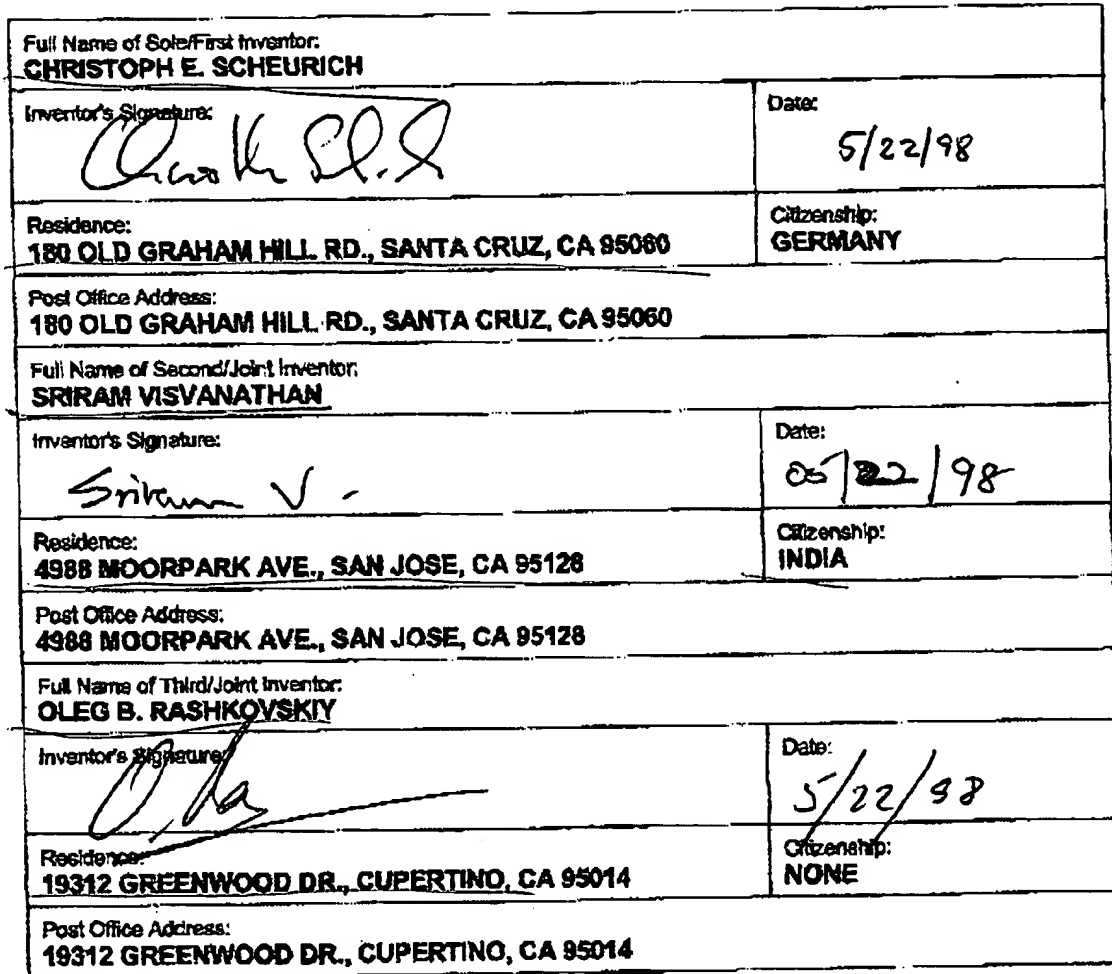 Full Name of Sole/First Inventor:
CHRISTOPH E. SCHEURICH
Inventor's Signature:
Date:
5/22/98
Residence:
180 OLD GRAHAM HILL RD., SANTA CRUZ, CA 95060
Citizenship:
GERMANY
Post Office Address:
180 OLD GRAHAM HILL RD., SANTA CRUZ, CA 95060
Full Name of Second/Joint Inventor:
SRIRAM VISVANATHAN
Inventor's Signature:
Sriram V.
Date:
05/22/98
Residence:
4988 MOORPARK AVE., SAN JOSE, CA 95128
Citizenship:
INDIA
Post Office Address:
4988 MOORPARK AVE., SAN JOSE, CA 95128
Full Name of Third/Joint Inventor:
OLEG B. RASHKOVSKIY
Inventor's Signature:
Date:
5/22/98
Residence:
19312 GREENWOOD DR., CUPERTINO, CA 95014
Citizenship:
NONE
Post Office Address:
19312 GREENWOOD DR., CUPERTINO, CA 95014